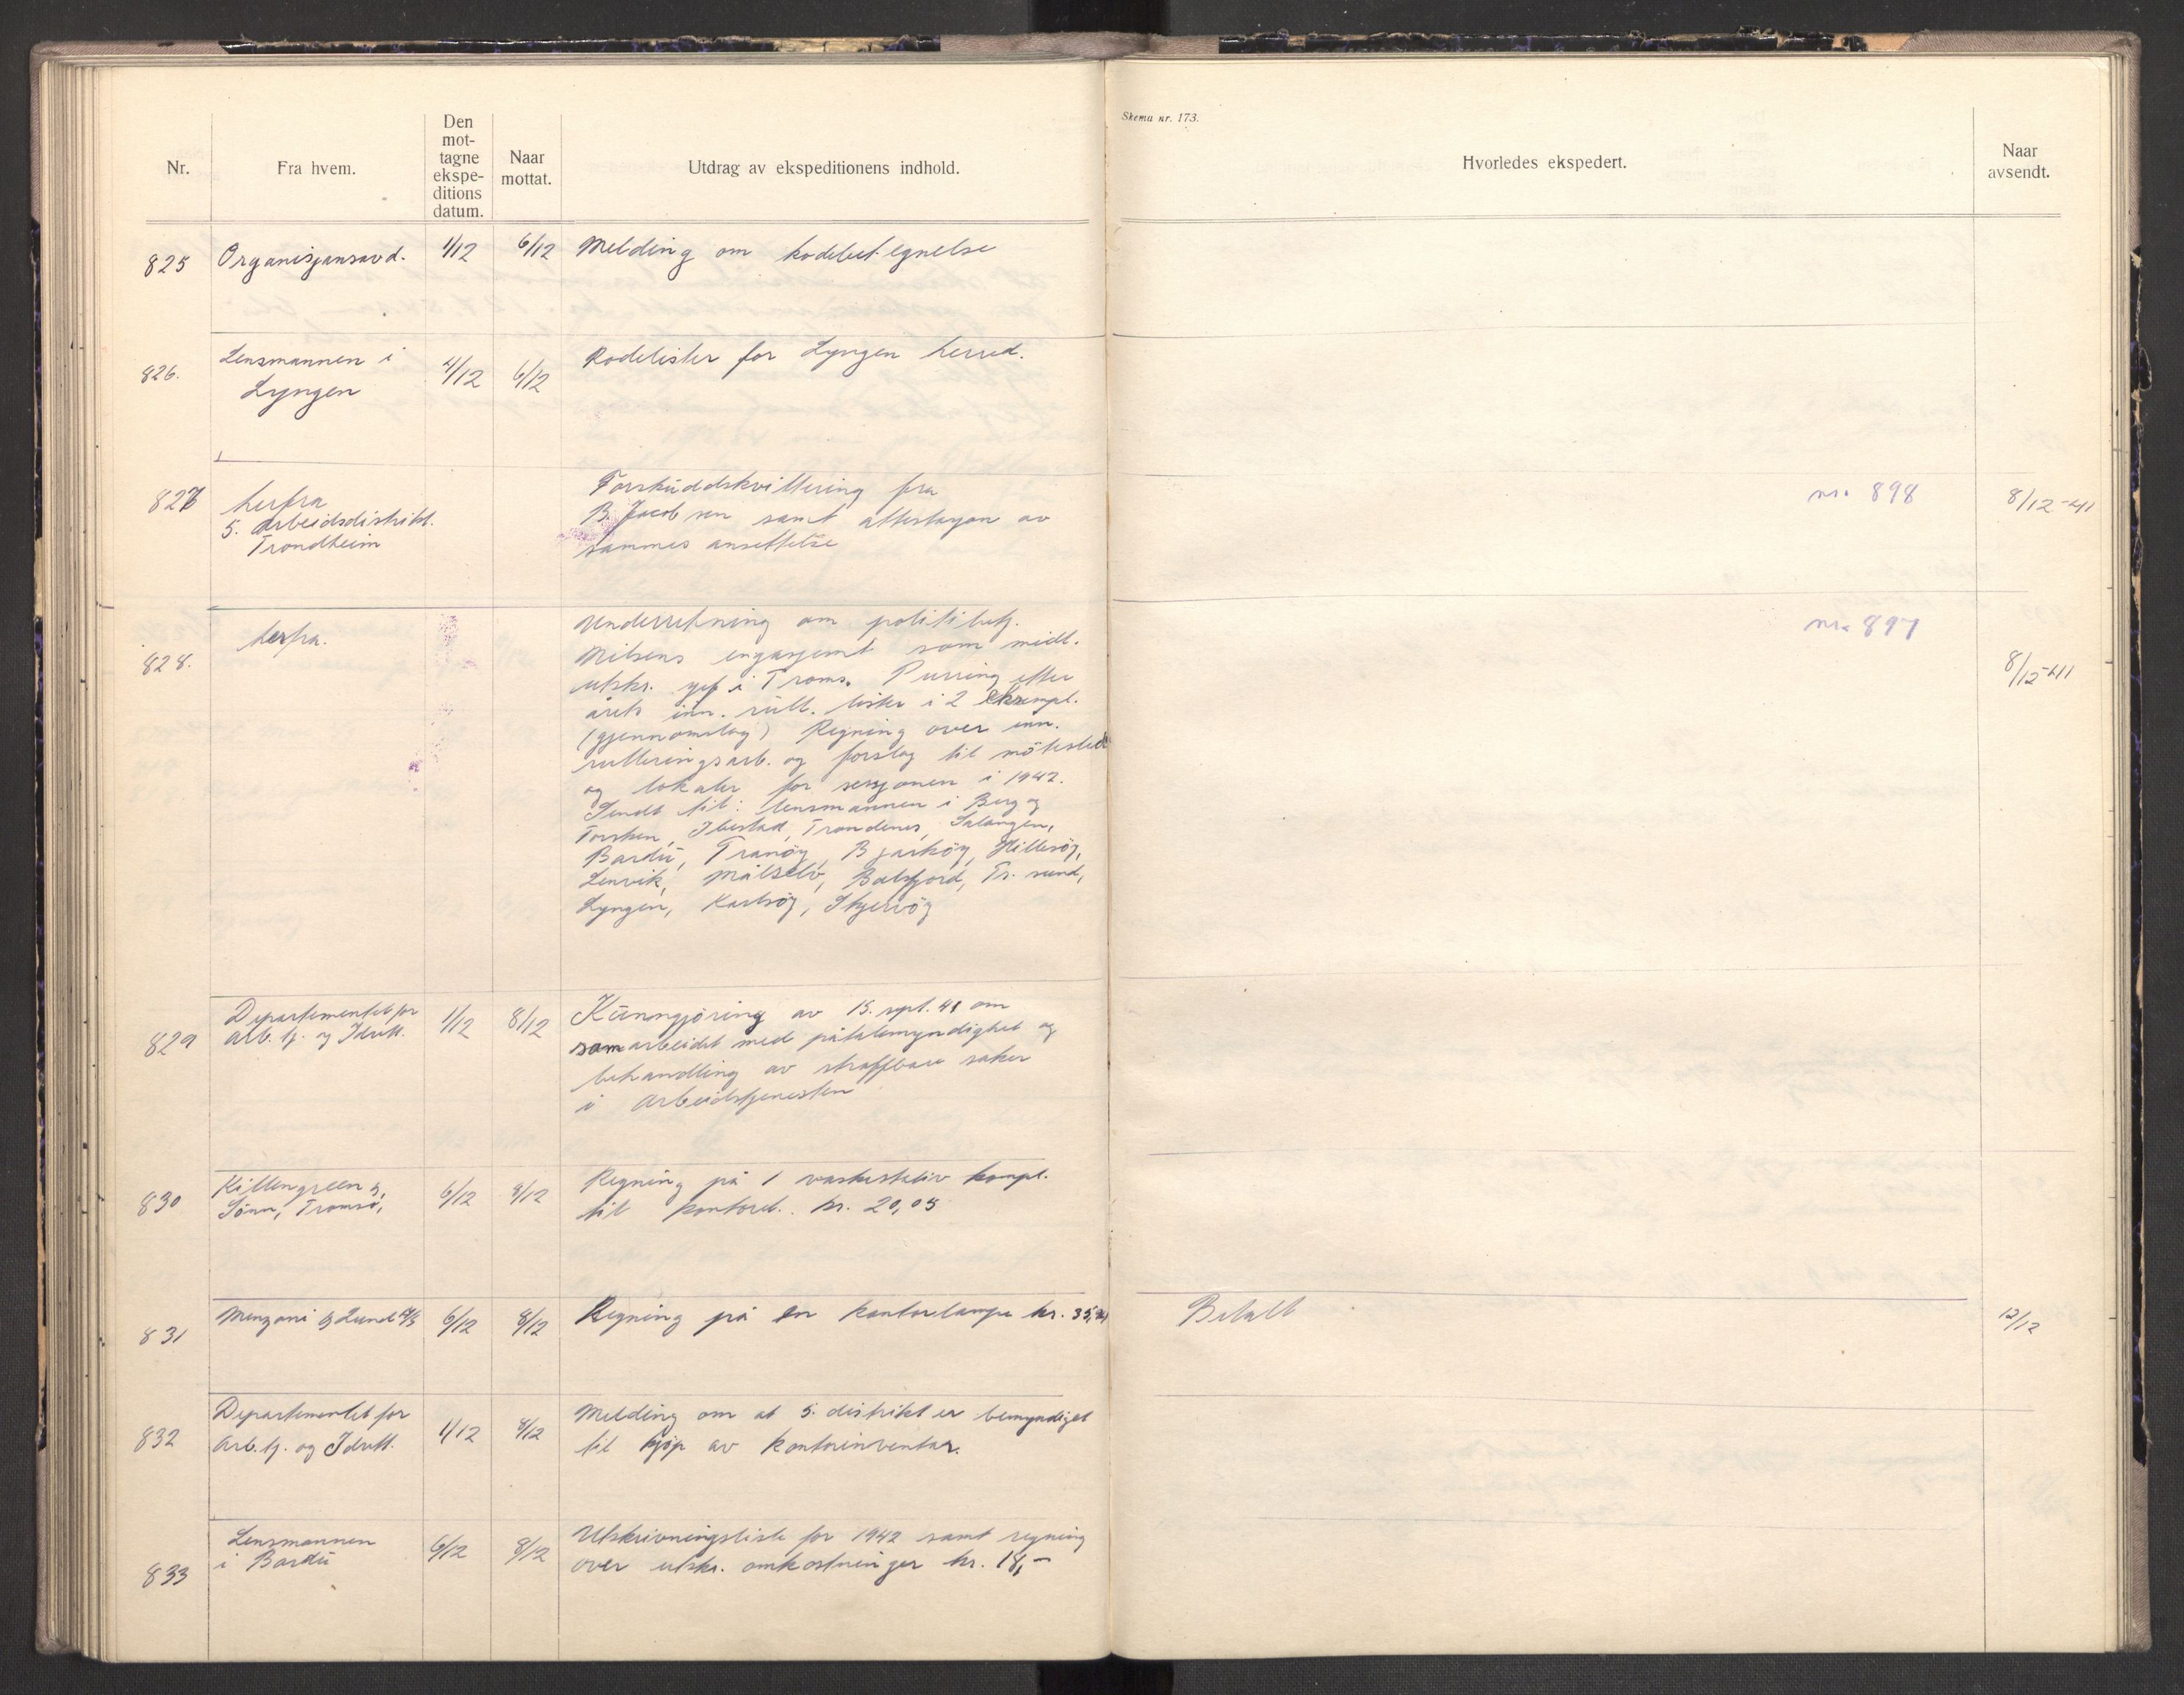 Skema nr. 173.
Nr.
Fra hvem.
Den
mot-
tagne
ekspe-
ditions
datum.
Naar
mottat.
Utdrag av ekspeditionens indhold.
Hvorledes ekspedert.
Naar
avsendt.
825 Organisjonsavd. 1/12 6/12 Melding om kodebetegnelse
826. Lensmannen i
Lyngen 4/12 6/12 Rodelister for Lyngen herred.
827 herfra
5. Arbeidsdistrikt.
Trondheim
Forskuddskvittering fra
B. Jacobsen samt attestasjon av
sammes ansettelse
nr. 898 8/12-41
828. herfra.
Underretning om politibetj.
Nilsens engasjemt som midl.
utskr. sjef i Troms. Purring efter
årets inn. rull. lister i 2 eksempl.
(gjennomslag) Regning over inn-
rulleringsarb. og forslag til mötested
og lokaler for sesjonen i 1942.
Sendt til: lensmannen i Berg og
Torsken, Ibestad, Trondenes, Salangen,
Bardu, Tranöy, Bjarköy, Hillesöy,
Lenvik, Målselv, Balsfjord, Tr. sund,
Lyngen, Karlsöy, Skjervöy
nr. 897
8/12-41
829 Departementet for
Arb. tj. og Idrett. 1/12 8/12 Kunngjöring av 15. sept. 41 om
samarbeidet med påtalemyndighet og
behandling av straffbare saker
i Arbeidstjenesten
830 Killengreen &
Sönn, Tromsö, 6/12 8/12 Regning på 1 vaskestativ kompl.
til kontoret. kr. 20,05
831 Menzoni & Lund A/S 6/12 8/12 Regning på en kontorlampe kr. 35,
Betalt 12/12
832 Departementet for
Arb. tj. og Idrett. 1/12 8/12 Melding om at 5. distrikt er bemyndiget
til kjöp av kontorinventar.
833 Lensmannen
i Bardu 6/12 8/12 Utskrivningsliste for 1942 samt regning
over utskr. omkostninger kr. 18,-